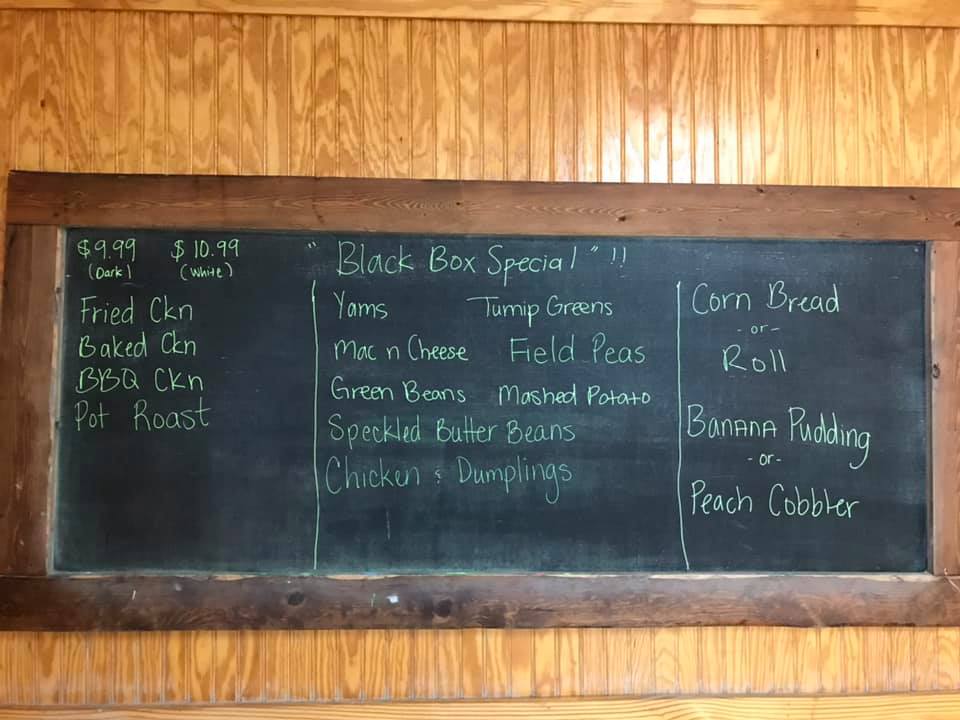 $9.99 $10.99
(Dark) (White)
"Black Box Special"!!
Fried Ckn
Baked Ckn
BBQ Ckn
Pot Roast
Yams Turnip Greens
Mac n Cheese Field Peas
Green Beans Mashed Potato
Speckled Butter Beans
Chicken & Dumplings
Corn Bread
-or-
Roll
Banana Pudding
-or-
Peach Cobbler